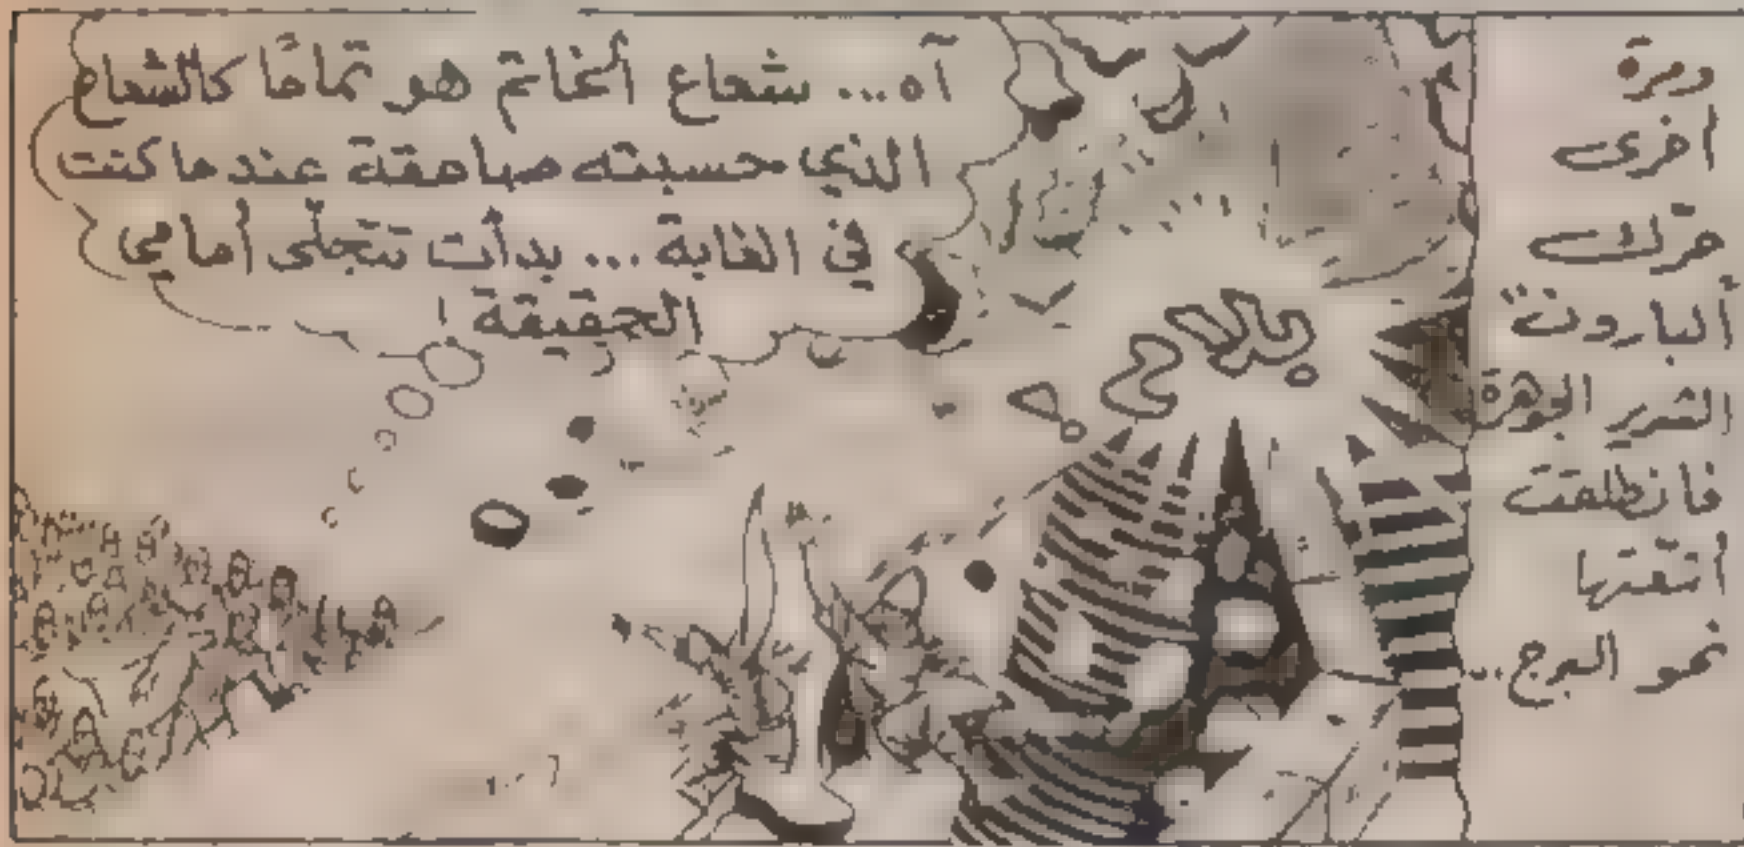 ومرة
أخرى
حرّك
ألبارون
الشرير الجوهرة
فانطلقت
أشعّتها
نحو البرج...
آه... شعاع ألخاتم هو تمامًا كالشعاع
الذي حسبته صاعقة عندما كنت
في الغابة... بدأت تتجلّى أمامي
الحقيقة!